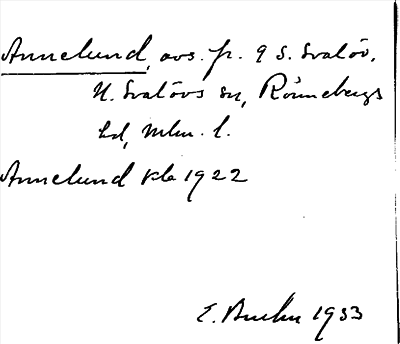 Annelund, avs. fr. 9 S. Svalöv,
N. Svalövs sn, Rönnebergs
hd, Mlm. l.
Annelund kb 1922
E. 1933